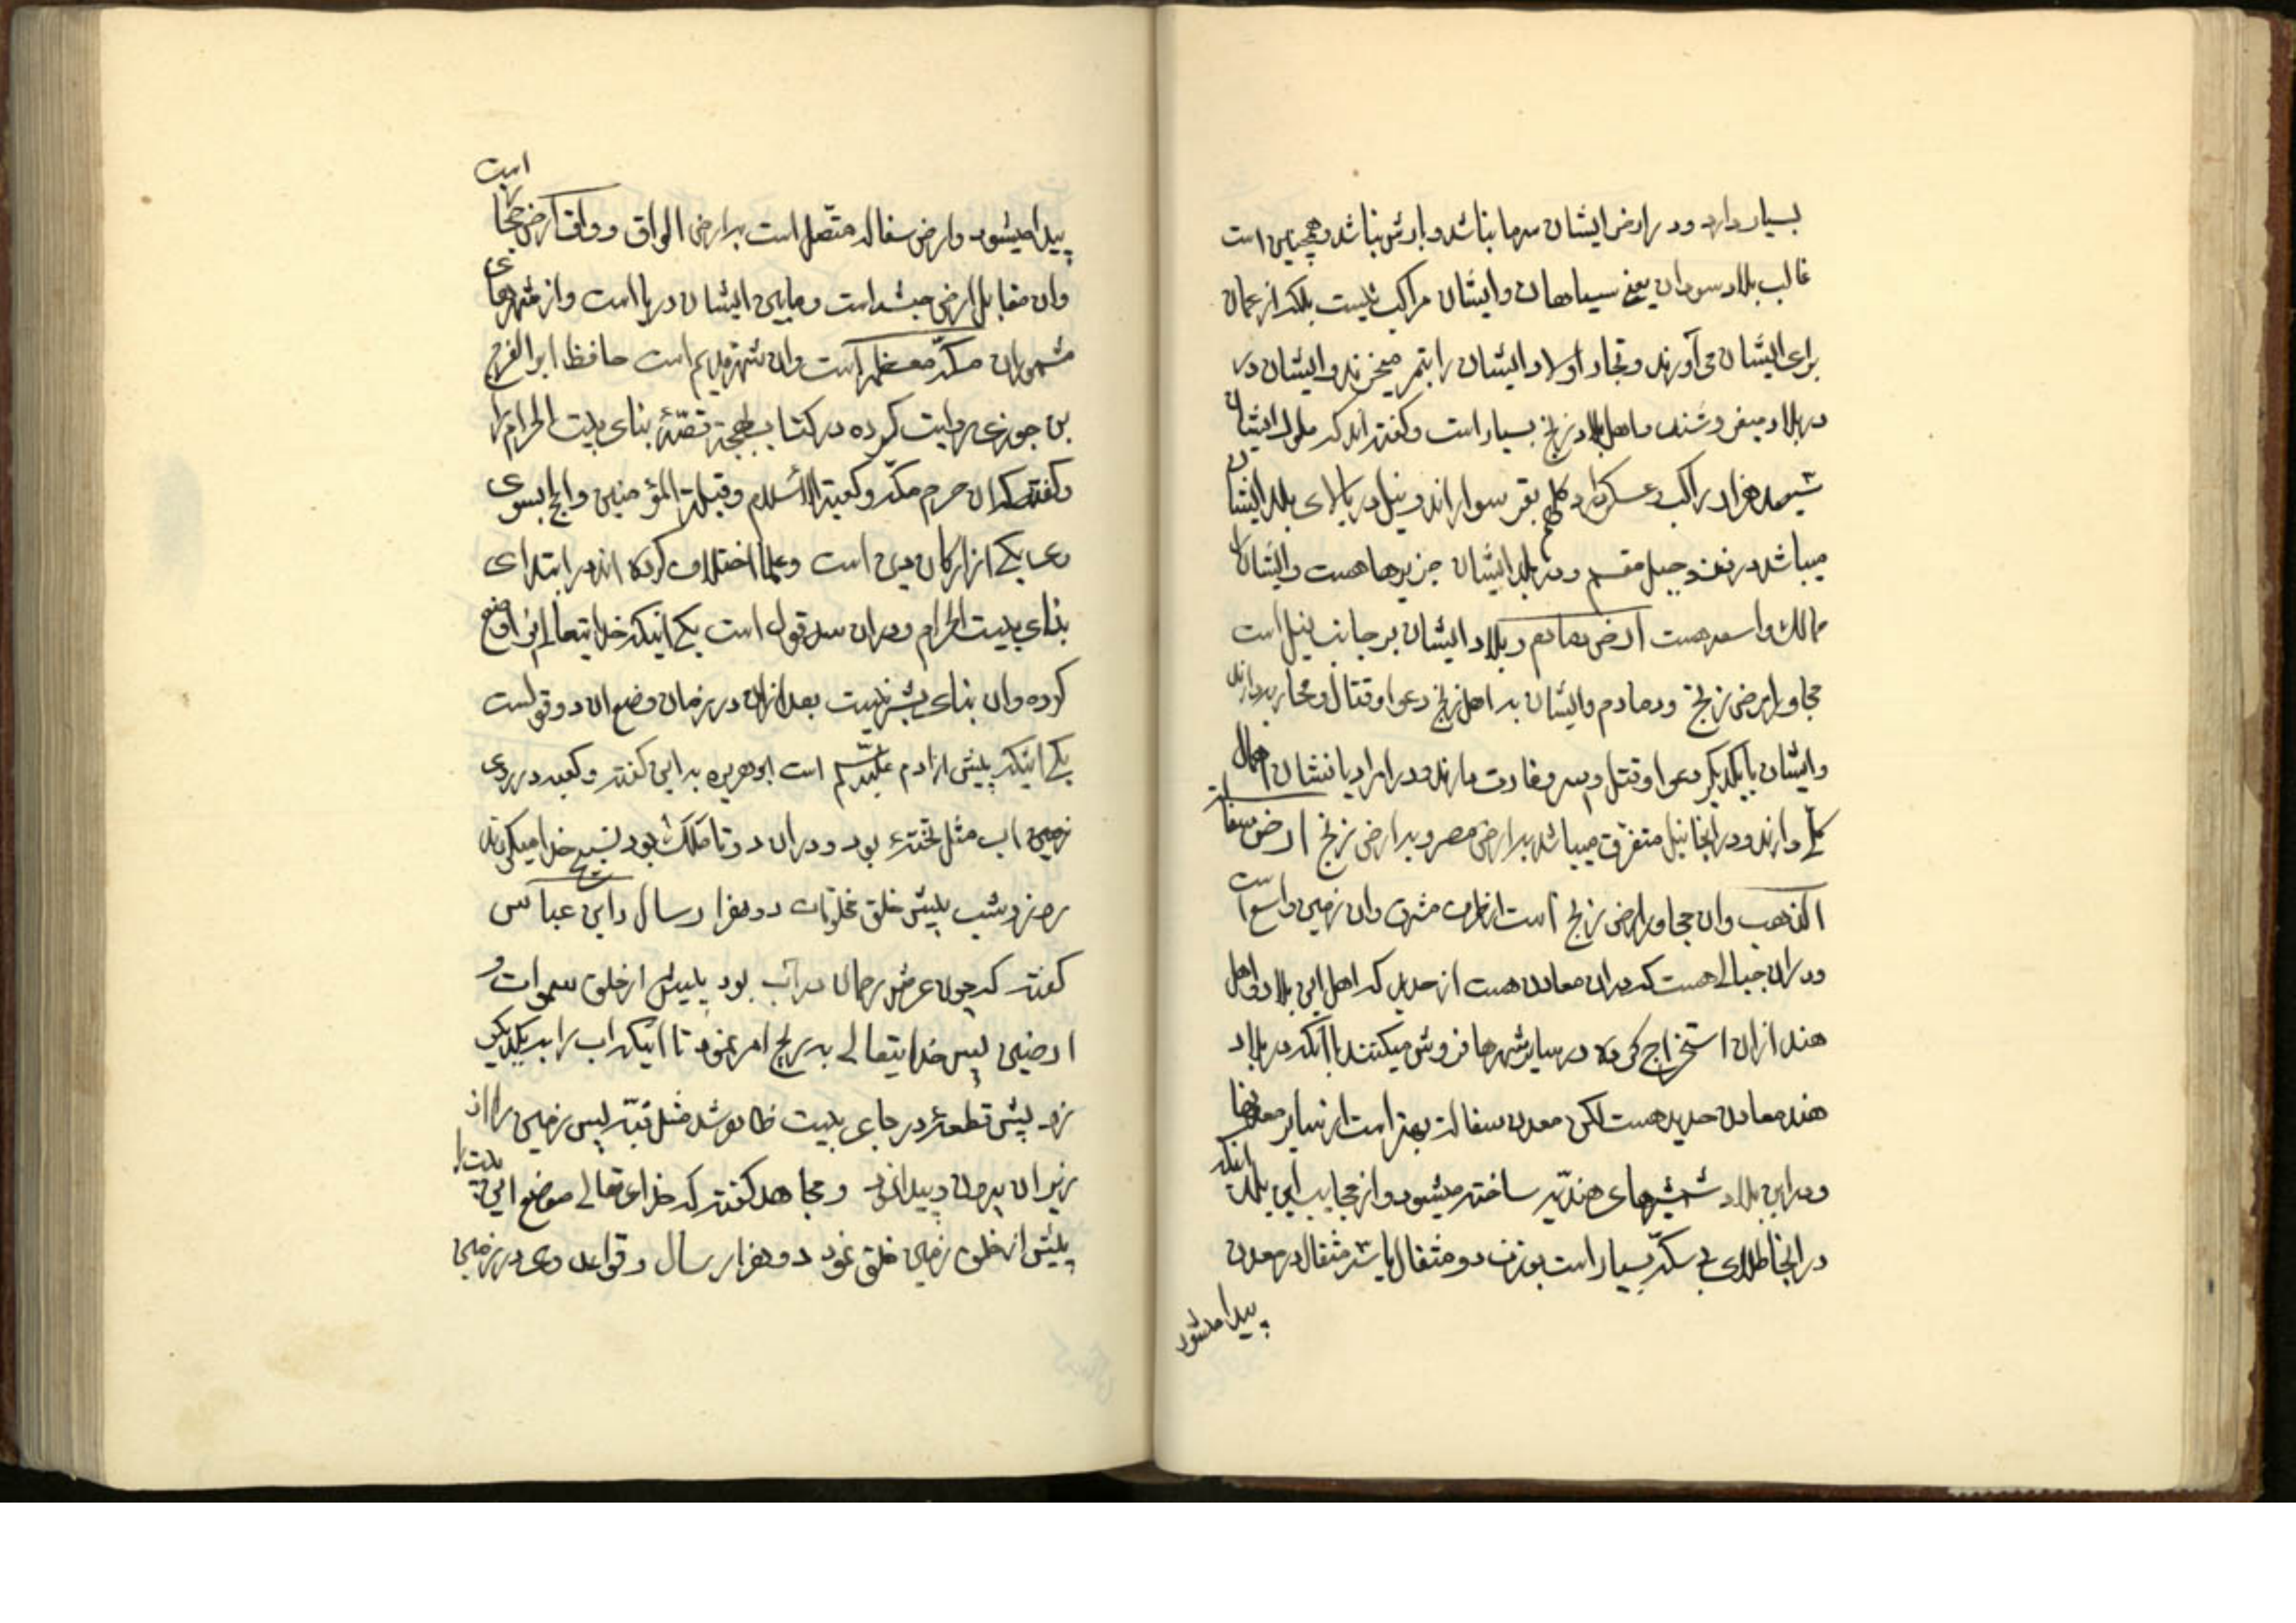 بسیار دارد و در ارض ایشان سرما نباشد و بارش نباشد و همچنین است
غالب بلاد سودان یعنی سیاهان و ایشان مراکب نیست بلکه از عمان
برای ایشان می‌آورند و تجار اولاد ایشان را بتمر میخرند و ایشان در
در بلاد میفروشند و اهل بلاد زنج بسیار است و گفته‌اند که ملوک ایشان
سیصد هزار راکب عسکر دارد کلهم بقر سواراند و نیل در بالای بلد ایشان
میباشد در نزد جبل مقسم و در بلد ایشان جزیرها هست و ایشان را
ممالک واسعه هست ارض دمادم و بلاد ایشان بر جانب نیل است
مجاور ارض زنج و دمادم و ایشان به اهل زنج دعوا و قتال و محاربه دارند
و ایشان با یکدیگر دعوا و قتل و غارت دارند و در امر ادیانشان اهمال
کلی دارند و در اینجا نیل متفرق میباشد به ارض مصر و به ارض زنج ارض سفاله
الذهب و ان مجاور ارض زنج است از طرف مشرق و ان زمین واسع است
و در ان جبالی هست که در ان معادن هست از حدید که اهل این بلاد و اهل
هند از ان استخراج کرده در سایر شهرها فروش میکنند با آنکه در بلاد
هند معادن حدید هست لکن معدن سفاله بهتر است از سایر معدنها
و در این بلاد شمشیرهای هندیه ساخته میشود و از عجایب این بلد اینکه
در اینجا طلای بی سکه بسیار است بوزن دو مثقال یا سه مثقال در معدن
پیدا میشود
پیدا میشود و ارض سفاله متصل است به ارض الواق و واق ارض حجاز است
و ان مقابل ارض حبشه است و مابین ایشان دریا است و از شهرهای
مشهور ان مکه معظمه است و ان شهر قدیم است حافظ ابو الفرج
بن جوزی روایت کرده در کتاب بهجة قصهٔ بنای بیت الحرام را
و گفته که ان حرم مکه و کعبة الاسلام و قبلة المؤمنین و الحج بسوی
وی یکی از ارکان دین است و علما اختلاف کرده اند در ابتدای
بنای بیت الحرام و در ان سه قول است یکی اینکه خدایتعالی انرا وضع
کرده و ان بنای بشر نیست بعد از ان در زمان وضع ان دو قول است
یکی اینکه پیش از ادم علیه السلام است ابو هریره به این گفته و کعبه در روی
زمین اب مثل تختهٔ بود و در ان دو تا ملک بود تسبیح خدا میکردند
روز و شب پیش خلق مخلوقات دو هزار سال و ابن عباس
گفته که چون عرش رحمان در آب بود پیش از خلق سموات و
ارضین پس خدایتعالی به ریح امر نمود تا اینکه اب را به یکدیگر
زد پس قطعهٔ در جای بیت ظاهر شد مثل قبه پس زمین را از
زیر ان بیرون و پیدا کرد و مجاهد گفته که خدای تعالی موضع این بیت را
پیش از خلق زمین خلق نمود دو هزار سال و قواعد وی در زمین